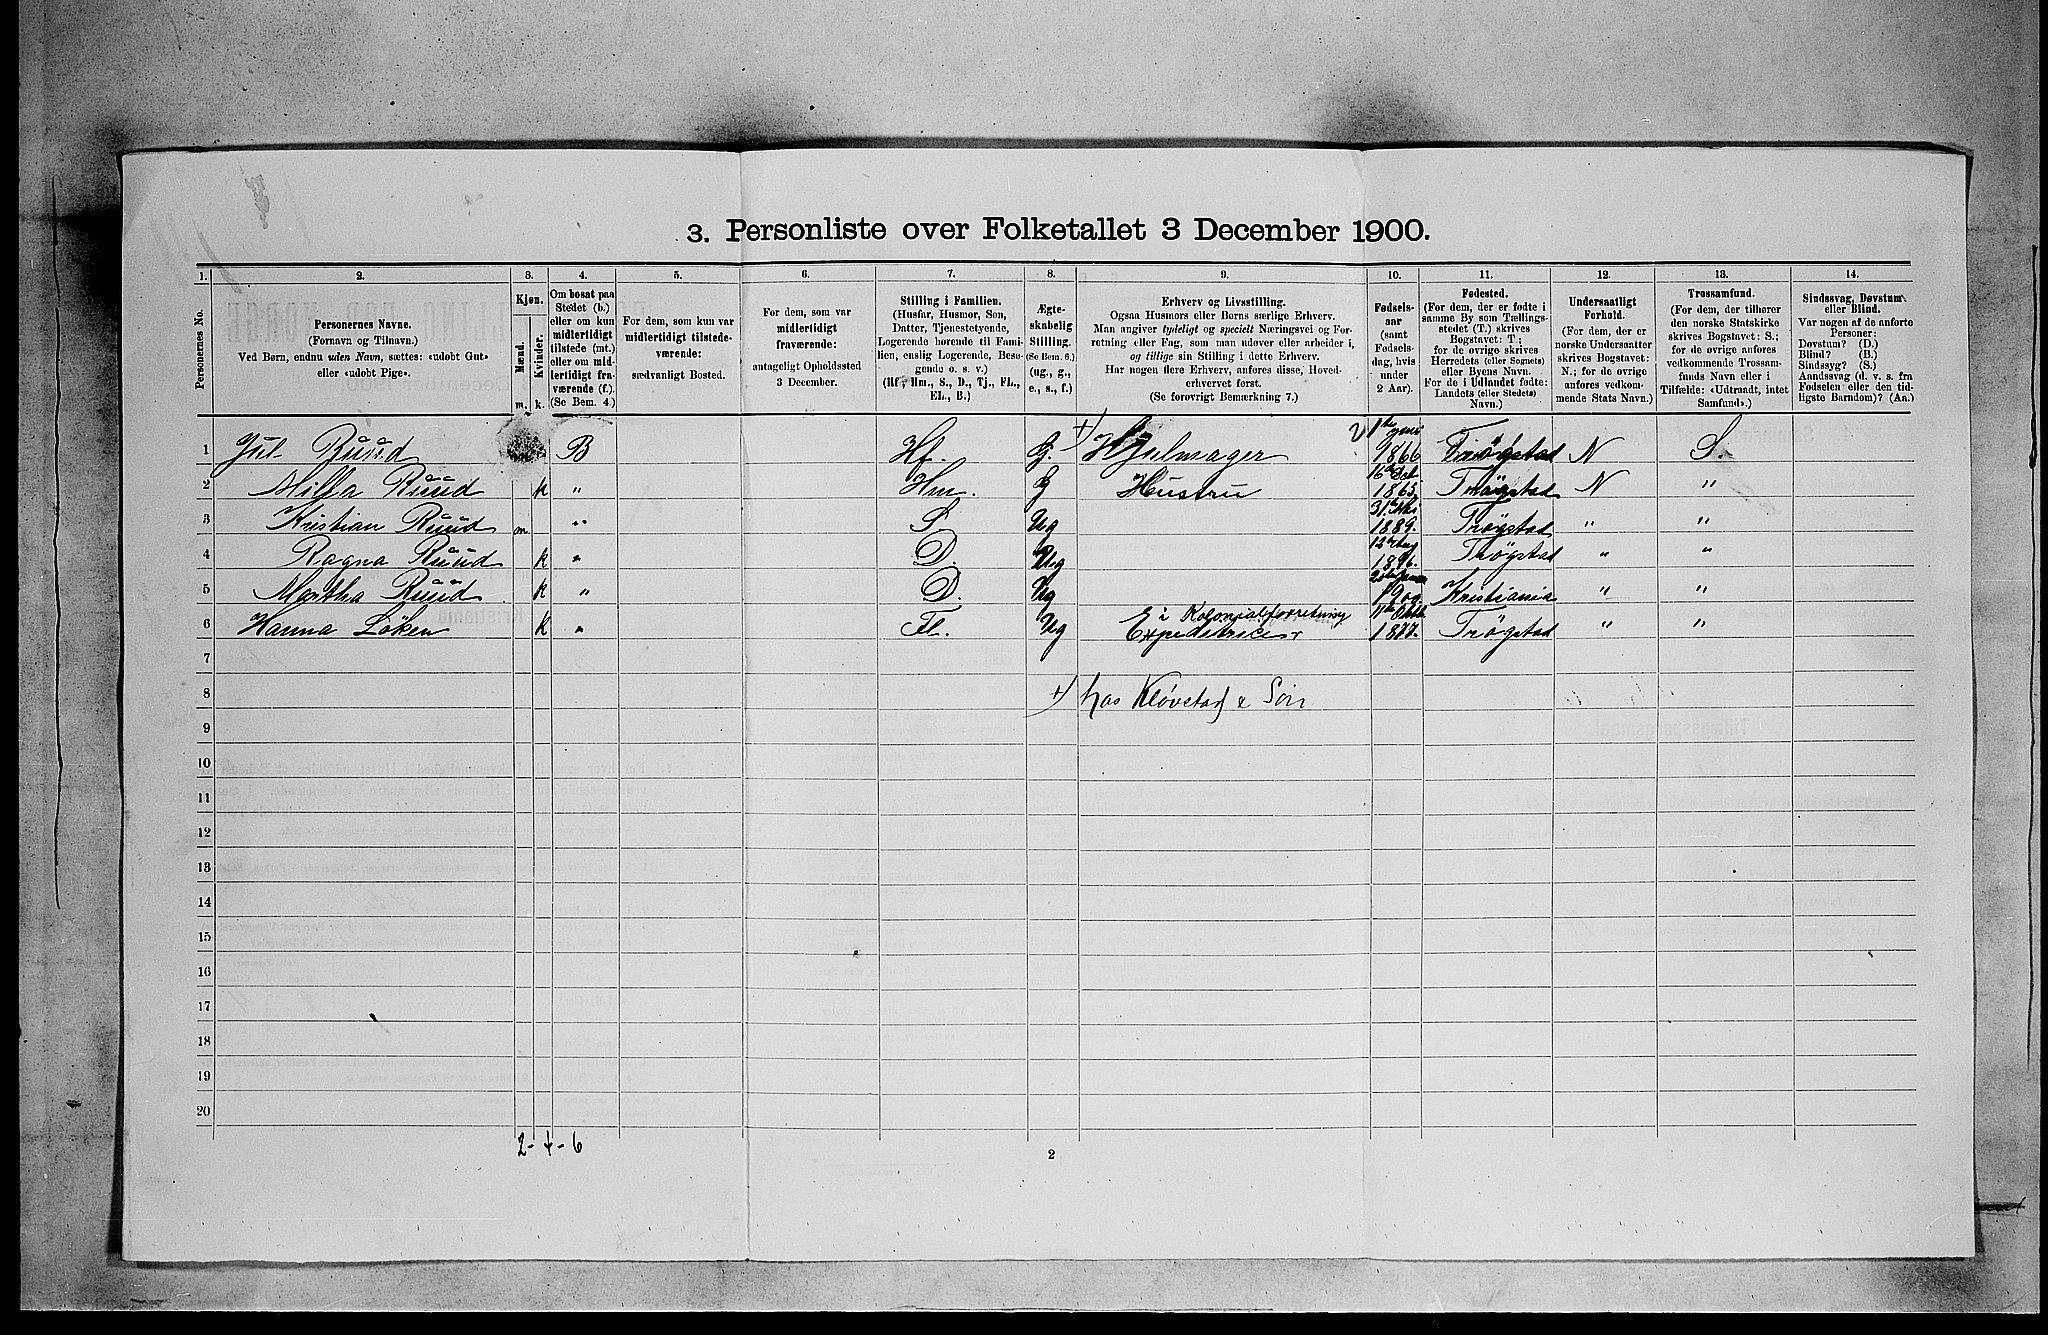 3. Personliste over Folketallet 3 December 1900.
1. 2. 3. 4. 5. 6. 7. 8. 9. 10. 11. 12. 13. 14.
Personernes No.
Personernes Navne.
(Fornavn og Tilnavn.)
Ved Børn, endnu uden Navn, sættes: «udøbt Gut»
eller «udøbt Pige».
Kjøn.
Mænd. Kvinder.
m. k.
Om bosat paa
Stedet (b.)
eller om kun
midlertidigt
tilstede (mt.)
eller om mid-
lertidigt fra-
værende (f.)
(Se Bem. 4.)
For dem, som kun var
midlertidigt tilstede-
værende:
sædvanligt Bosted.
For dem, som var
midlertidigt
fraværende:
antageligt Opholdssted
3 December.
Stilling i Familien.
(Husfar, Husmor, Søn,
Datter, Tjenestetyende,
Logerende hørende til Fami-
lien, enslig Logerende, Besø-
gende o. s. v.)
(Hf., Hm., S., D., Tj., FL.,
EL., B.)
Ægte-
skabelig
Stilling.
(Se Bem. 6.)
(ug., g.,
e., s., f.)
Erhverv og Livsstilling.
Ogsaa Husmors eller Børns særlige Erhverv.
Man angiver tydeligt og specielt Næringsvei og For-
retning eller Fag, som man udøver eller arbeider i,
og tillige sin Stilling i dette Erhverv.
Har nogen flere Erhverv, anføres disse, Hoved-
erhvervet først.
(Se forøvrigt Bemærkning 7.)
Fødsels-
aar
(samt
Fødsels-
dag, hvis
under
2 Aar).
Fødested.
(For dem, der er fødte i
samme By som Tællings-
stedet (T.) skrives
Bogstavet: T.;
for de øvrige skrives
Herredets (eller Sognets)
eller Byens Navn.
For de i Udlandet fødte:
Landets (eller Stedets)
Navn.)
Undersaatligt
Forhold.
(For dem, der er
norske Undersaatter
skrives Bogstavet:
N.; for de øvrige
anføres vedkom-
mende Stats Navn.)
Trossamfund.
(For dem, der tilhører
den norske Statskirke
skrives Bogstavet: S.;
for de øvrige anføres
vedkommende Trossam-
funds Navn eller i
Tilfælde: «Udtraadt, intet
Samfund».)
Sindssvag, Døvstum
eller Blind.
Var nogen af de anførte
Personer:
Døvstum? (D.)
Blind? (B.)
Sindssyg? (S.)
Aandssvag (d. v. s. fra
Fødselen eller den tid-
ligste Barndom)? (Aa.)
1 Jul Ruud B Hf. G. +) Hjulmager 1866 Trøgstad N S.
2 Milla Ruud k " Hm. G Hustru 1865 Trøgstad N "
3 Kristian Ruud m " S Ug 1889. Trøgstad " "
4 Ragna Ruud k " D. Ug 1896. Trøgstad " "
5 Martha Ruud k " D. Ug 1900. Kristiania " "
6 Hanna Løken k " Fl. Ug E i Kolonialforretning Expeditrice 1877. Trøgstad " "
7
8 +) hos Kløvstad & Søn
9
10
11
12
13
14
15
16
17
18
19
20
2-4-6
2